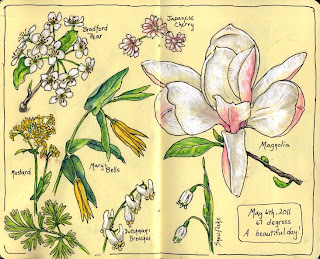 Bradford
Pear
Japanese
Cherry
Magnolia
Mustard
Merry
Bells
Dutchman's
Breeches
Snowflake
May 6th, 2011
67 degrees
A beautiful day!